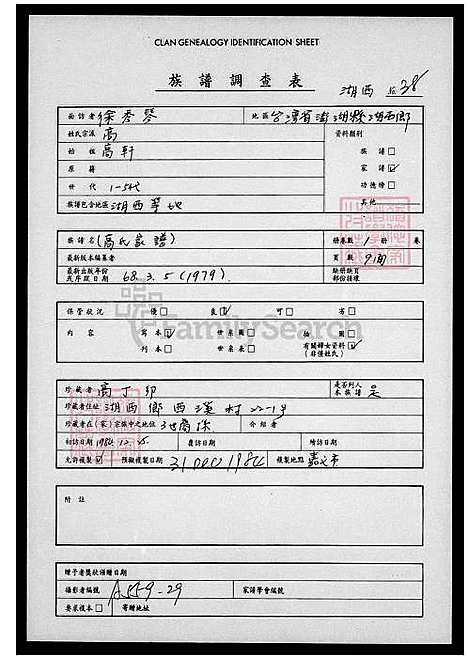 CLAN GENEALOGY IDENTIFICATION SHEET
族譜調查表
湖西 38
面訪者 徐秀琴 地區 台灣省澎湖縣湖西鄉
姓氏宗派 高 資料類別
始祖 高軒 族譜□
原籍 家譜☑
世代 1-5代 功德榜□
族譜包含地區 湖西等地 其他
族譜名 (高氏家譜) 冊卷數 1 冊 卷
最新版本編纂者 頁數 9面
最新出版年份或序跋日期 68.3.5(1979). 缺冊缺頁部份註環
保管狀況 優□ 良☑ 可□ 劣□
內容 寫本☑ 世系圖□ 插圖□
刊本□ 世系表□ 有關婦女資料(非僅姓氏)☑
FamilySearch
珍藏者 高丁卯 是否列入本族譜 是
珍藏者住址 湖西鄉西溪村22-1号
珍藏者在(家)宗族中之地位 介紹者
初訪日期 1984.12.15 複訪日期 增訪日期
允許複製☑ 預擬複製日期 31 DEC 1984 複製地點 嘉义市
附註
贈予者獎狀頒贈日期
攝影者編號 A559-29 家譜學會編號
要求複本□ 寄贈地址